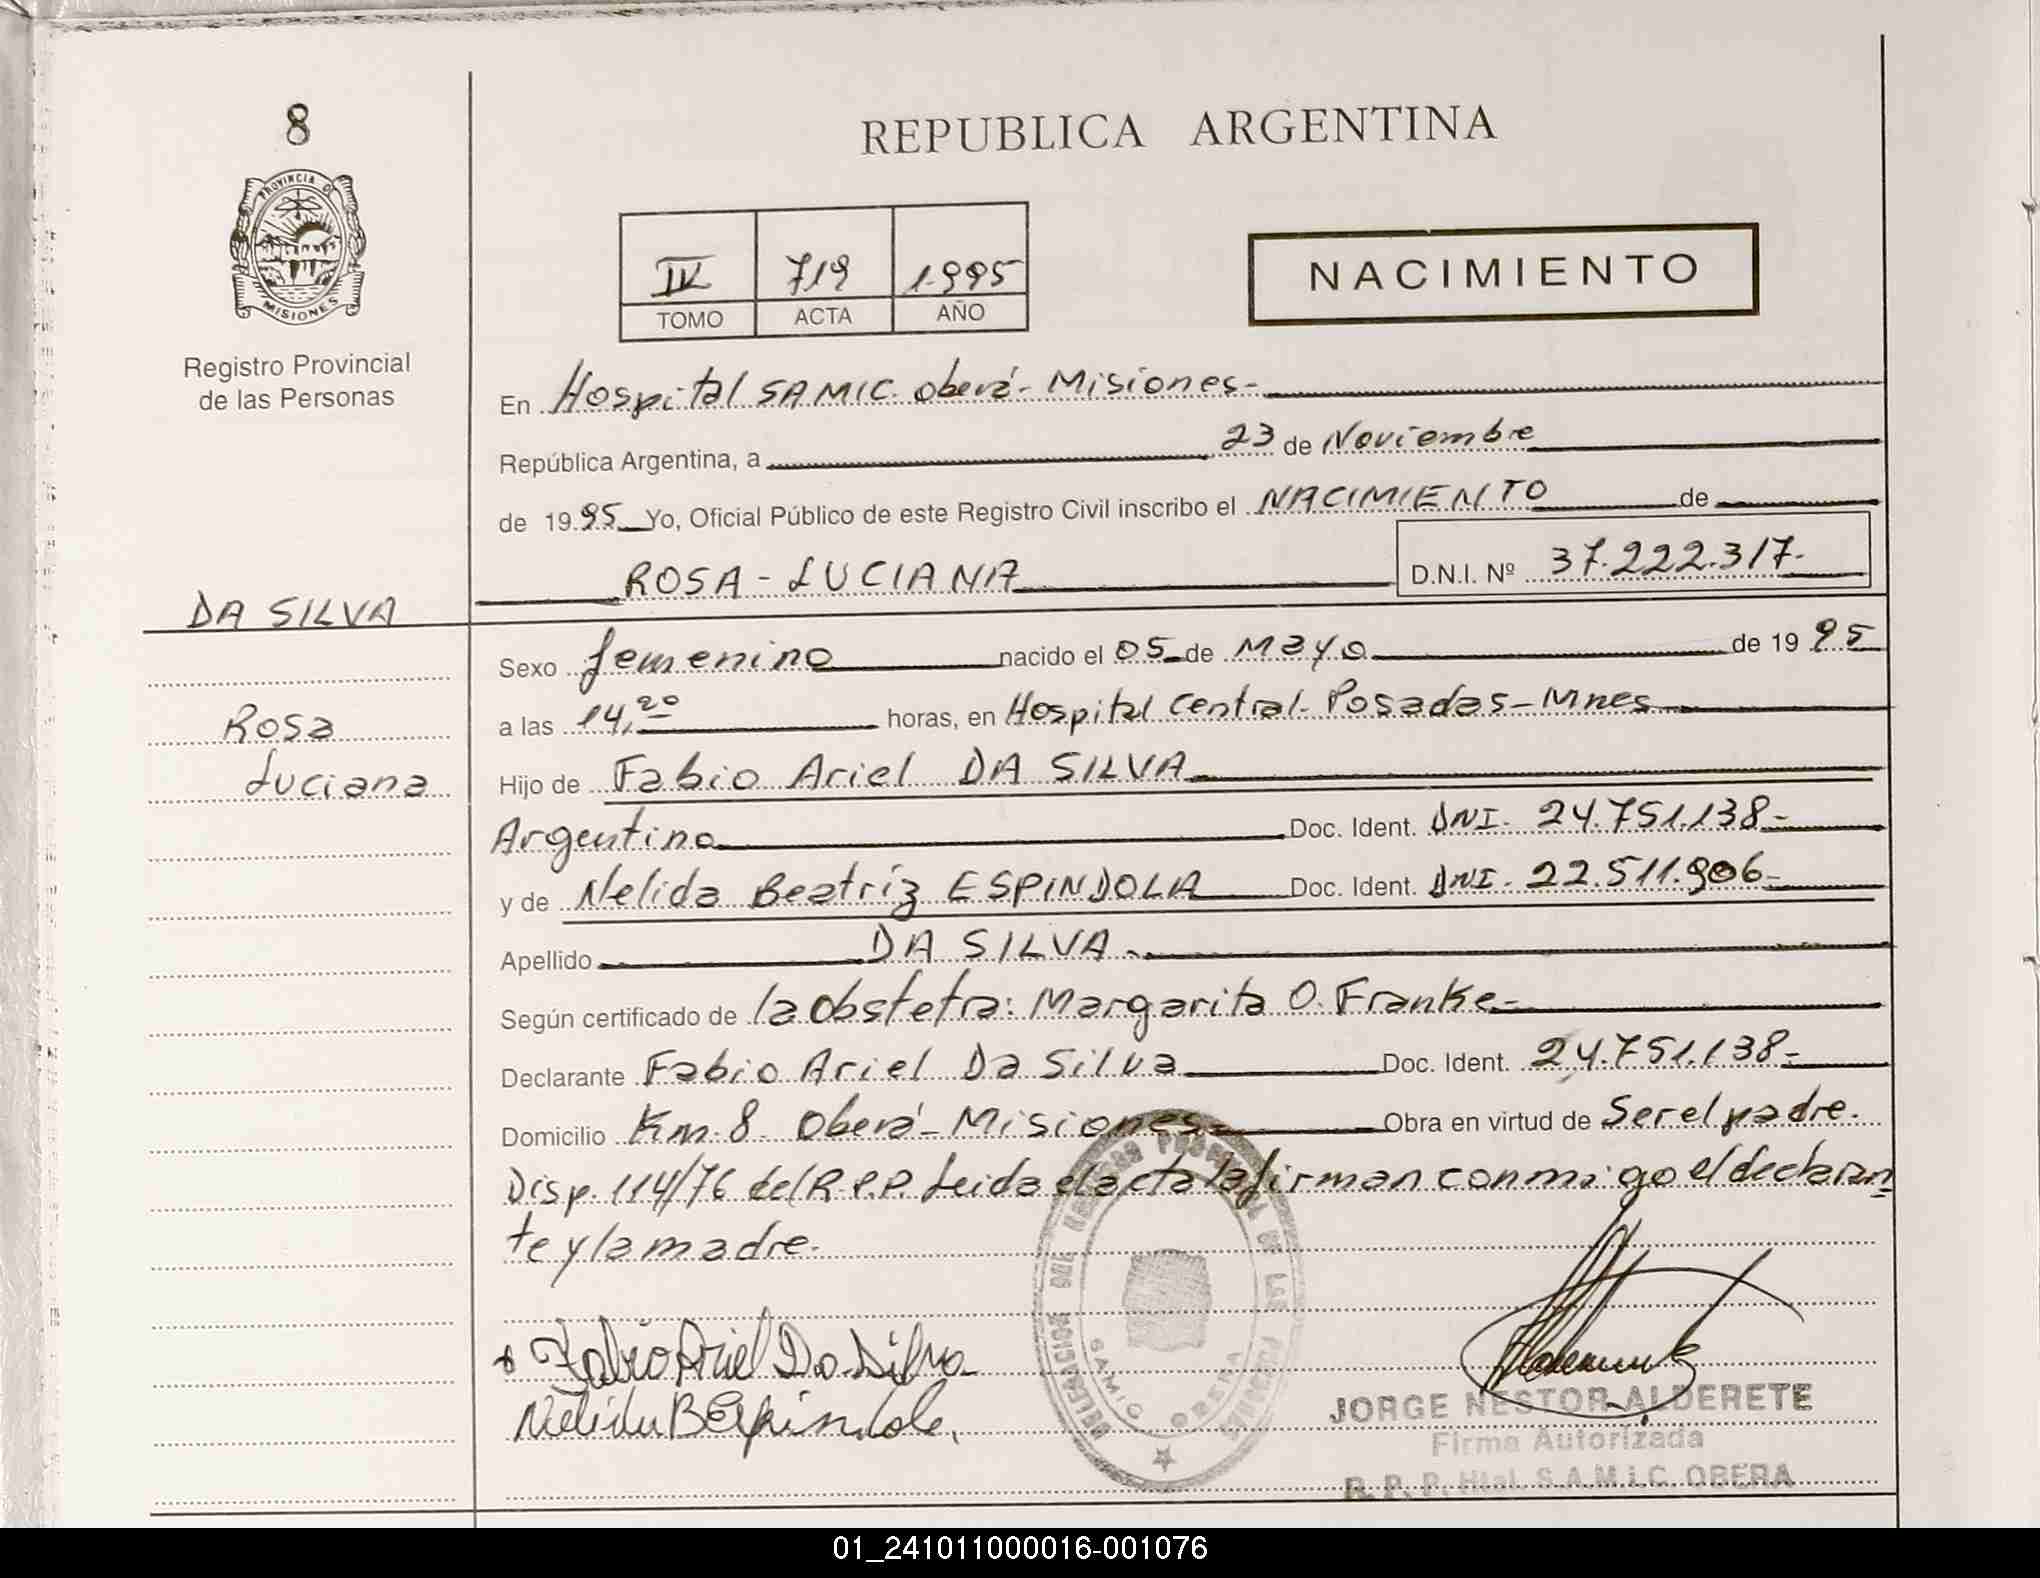 8
PROVINCIA D
MISIONES
Registro Provincial
de las Personas
REPUBLICA ARGENTINA
IV 719 1.995
TOMO ACTA AÑO
NACIMIENTO
En Hospital SAMIC. Oberá - Misiones -
República Argentina, a 23 de Noviembre
de 1995 Yo, Oficial Público de este Registro Civil inscribo el NACIMIENTO de
ROSA - LUCIANA D.N.I. Nº 37.222.317.-
DA SILVA
Rosa
Luciana
Sexo femenino nacido el 05 de Mayo de 1995
a las 14,20 horas, en Hospital Central - Posadas - Mnes
Hijo de Fabio Ariel DA SILVA
Argentino Doc. Ident. DNI. 24.751.138-
y de Nelida Beatriz ESPINDOLA Doc. Ident. DNI. 22.511.906-
Apellido DA SILVA.-
Según certificado de la obstetra: Margarita O. Franke-
Declarante Fabio Ariel Da Silva Doc. Ident. 24.751.138-
Domicilio Km. 8 Oberá - Misiones - Obra en virtud de Ser el padre.
Disp. 114/76 del R.P.P. Leida el acta la firman conmigo el declaran
te y la madre.
Fabio Ariel Da Silva
Nelida B Espindola.
DELEGACION DEL REGISTRO PROVINCIAL DE LAS PERSONAS
SAMIC OBERA
JORGE NESTOR ALDERETE
Firma Autorizada
R. P. P. Htal. S.A.M.I.C. OBERA
01_241011000016-001076